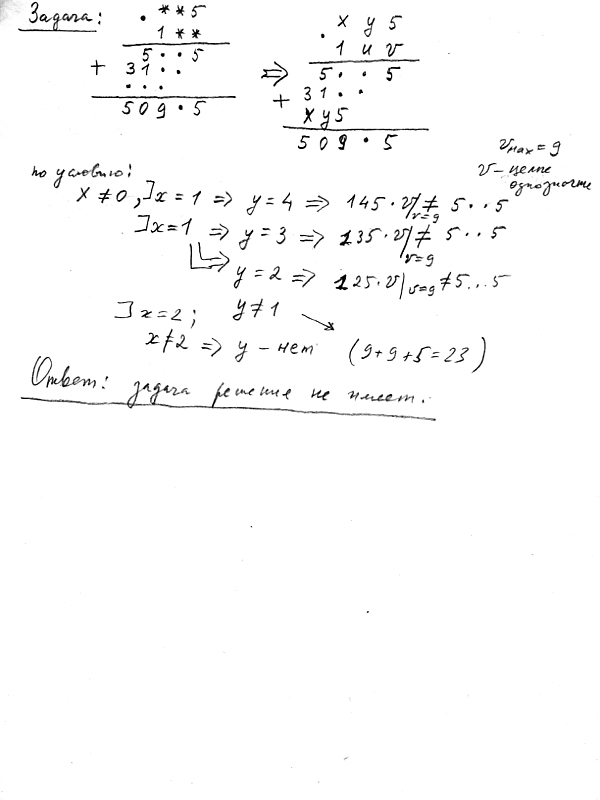 Задача:
· * * 5
1 * *
5 · · 5
+ 3 1 · ·
· · ·
5 0 9 · 5
⇒
· x y 5
1 u v
5 · · 5
+ 3 1 · ·
x y 5
5 0 9 · 5
v max = 9
v – целые
однозначные
по условию:
x ≠ 0, ∃x = 1 ⇒ y = 4 ⇒ 145 · v|v=9 ≠ 5 · · 5
∃x = 1 ⇒ y = 3 ⇒ 135 · v|v=9 ≠ 5 · · 5
⇒ y = 2 ⇒ 125 · v|v=9 ≠ 5 · · · 5
∃x = 2; y ≠ 1
x ≠ 2 ⇒ y – нет (9+9+5=23)
Ответ: задача решения не имеет.